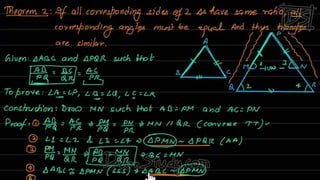 Theorem 2: If all corresponding sides of 2 Δs have same ratio, all
corresponding angles must be equal And thus triangles
are similar.
Given: ΔABC and ΔPQR such that
AB/PQ = BC/QR = AC/PR
To prove: ∠A=∠P, ∠B=∠Q, ∠C=∠R
Construction: Draw MN such that AB=PM and AC=PN
Proof: ① AB/PQ = AC/PR ⇒ PM/PQ = PN/PR ⇒ MN || QR (converse TT)
② ∠1=∠2 & ∠3=∠4 ⇒ ΔPMN ~ ΔPQR (AA)
③ PM/PQ = MN/QR ⇒ AB/PQ = MN/QR ⇒ BC=MN
④ ΔABC ≅ ΔPMN (SSS) ⇒ ΔABC ~ ΔPMN
A
B
C
P
M
1
3
N
Q
2
4
R